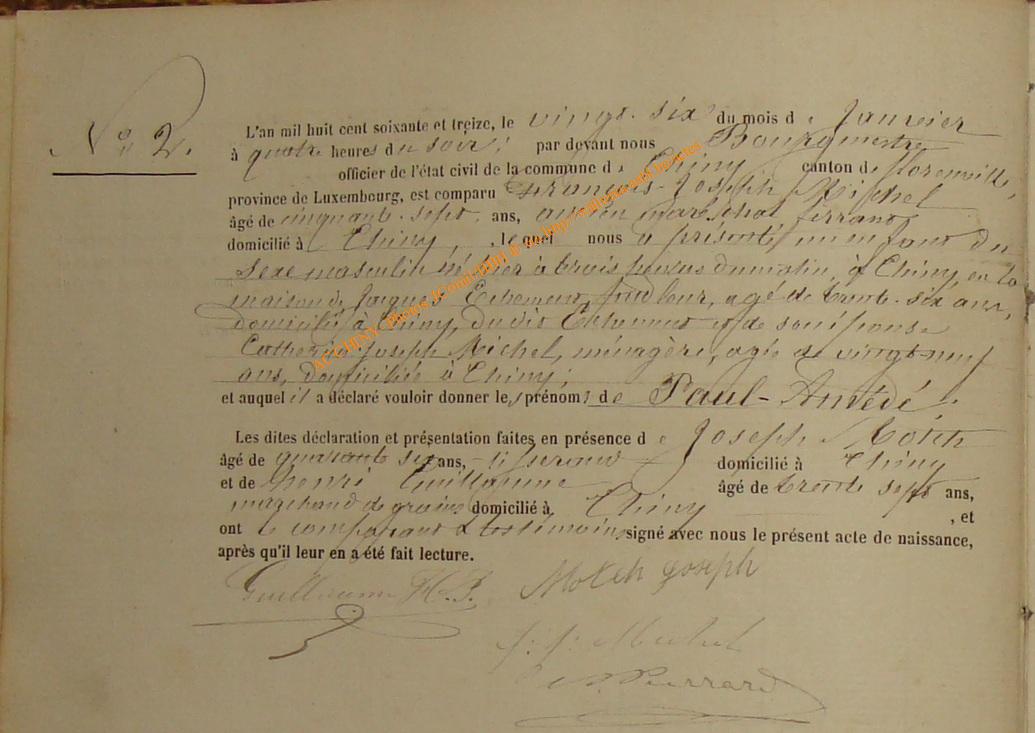 N° 2.
L'an mil huit cent soixante et treize, le vingt-six du mois de Janvier
à quatre heures du soir, par devant nous Bourgmestre
officier de l'état civil de la commune de Chiny canton de florenville,
province de Luxembourg, est comparu François-Joseph Michel
âgé de cinquante-sept ans, ancien maréchal ferrant
domicilié à Chiny, lequel nous a présenté un enfant du
sexe masculin né hier à trois heures du matin, à Chiny, en la
maison de Jaques Ethenneur, âgé de trente-six ans,
domicilié à Chiny, du dit Ethenneur et de son épouse
Catherine Joseph Michel, ménagère, agée de vingt neuf
ans, domiciliée à Chiny;
et auquel il a déclaré vouloir donner les prénoms de Paul-Amédé.
Les dites déclaration et présentation faites en présence de Joseph Motch
âgé de quarante six ans, tisserand domicilié à Chiny
et de henri Guillaume âgé de trente sept ans,
marchand de grains domicilié à Chiny , et
ont le comparant & les témoins signé avec nous le présent acte de naissance,
après qu'il leur en a été fait lecture.
Guillaume H.J. Motch Joseph
f. j. Michel
Pierrard
AC CHINY - Photos JComii-DDH @ tte Impr